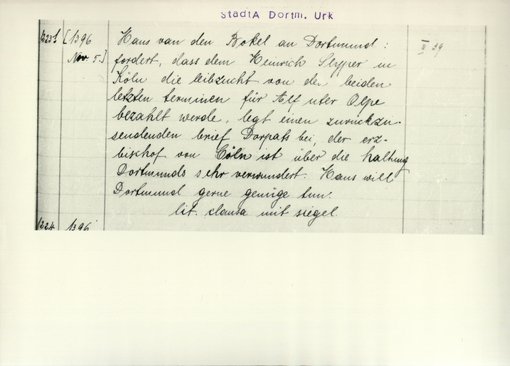 StadtA Dortm. Urk
[1396 Nov. 5.]
Hans van den Bokel an Dortmund:
fordert, dass dem Heinrich in
Köln die leibzucht von den beiden
letzten terminen für Alf uter Olpe
bezahlt werde, legt einen zurückzu-
sendenden brief Dorpats bei, der erz-
bischof von Cöln ist über die haltung
Dortmunds sehr verwundert. Hans will
Dortmund gerne genüge tun
lit. clausa mit siegel
II 29
1396